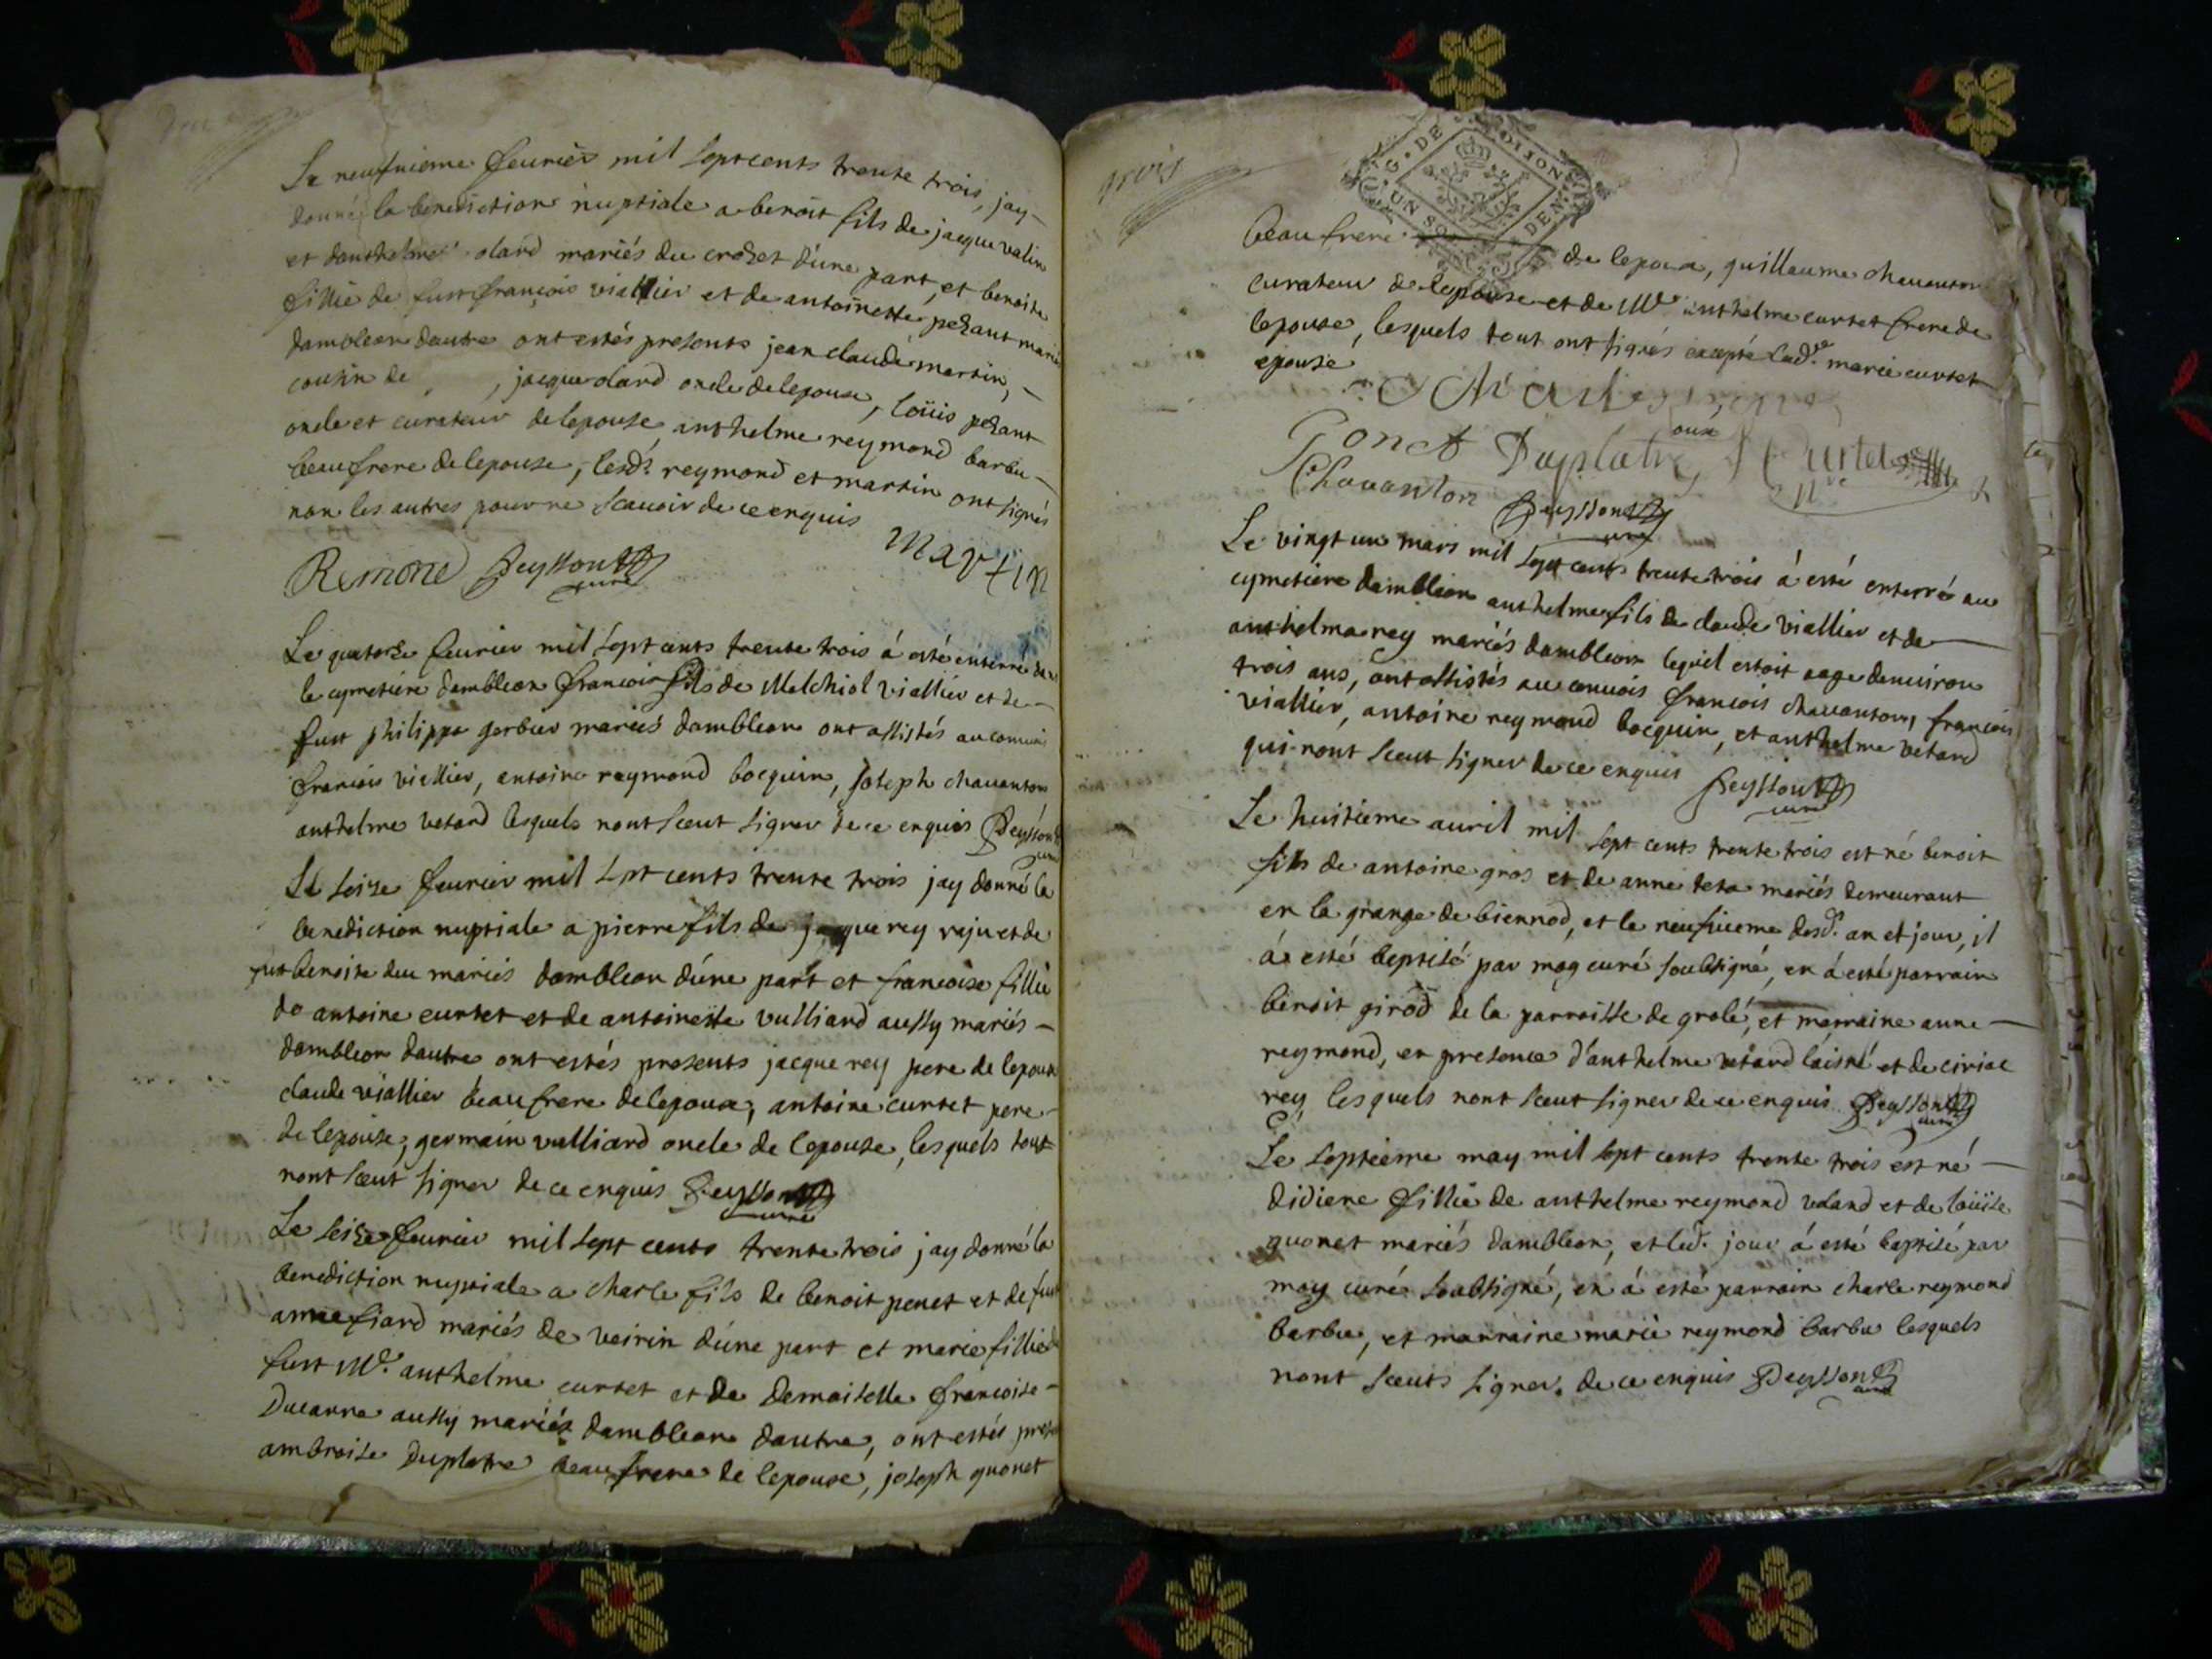 Le neufuieme feurier mil septcents trente trois, jay
donné la benediction nuptiale a benoit fils de jacque valin
et danthelme olard mariés du crozet d'une part, et benoite
fillie de fust françois viallier et de antoinette pezant mariés
dambleon dautre ont estés presents jean claude martin,
cousin de , jacque olard oncle de lepoux, loüis pezant
oncle et curateur de lepouse anthelme reymond barbu
beaufrere de lepouse, lesd. reymond et martin ont signés
non les autres pour ne scauoir de ce enquis
Remond Peysson curé Martin
Le quatorze feurier mil sept cents trente trois á esté enterré dans
le cymetiere dambleon françois fils de Melchiol viallier et de
fust philippe gerbier mariés dambleon ont assistés au conuois
françois viallier, antoine reymond bocquin, joseph chauanton
anthelme vetard lesquels nont sceut signer de ce enquis Peysson curé
Le seize feurier mil sept cents trente trois jay donné la
benediction nuptiale a pierre fils de jacque rey raju et de
fust benoite duc mariés dambleon d'une part et françoise fillie
de antoine curtet et de antoinette vulliard aussy mariés
dambleon dautre ont estés presents jacque rey pere de lepoux
claude viallier beaufrere de lepoux, antoine curtet pere
de lepouse, germain vulliard oncle de lepouse, lesquels tout
nont sceut signer de ce enquis Peysson curé
Le seize feurier mil sept cents trente trois jay donné la
benediction nuptiale a charle fils de benoit penet et de fust
anne fiard mariés de veirin d'une part et marie fillie de
fust Me. anthelme curtet et de Demoiselle françoise
Ducarre aussy mariés dambleon dautre, ont estés presents
ambroise Duplatre beaufrere de lepouse, joseph gnonet
trois
G. DE DIJON
UN SOL DEN
beaufrere de lepoux, guillaume chauanton
curateur de lepouse et de Me anthelme curtet frere de
lepouse, lesquels tout ont signés excepté lad.e marie curtet
epouse
Duplatre Curtet
Chauanton Peysson curé
Le vingt un mars mil sept cents trente trois á esté enterré au
cymetiere dambleon anthelme fils de claude viallier et de
anthelma rey mariés dambleon lequel estoit aage denuiron
trois ans, ont assistés au conuois françois chauanton, françois
viallier, antoine reymond bocquin, et anthelme vetard
qui nont sceut signer de ce enquis Peysson curé
Le huitieme auril mil sept cents trente trois est né benoit
fils de antoine gros et de anne teta mariés demeurant
en la grange de biennod, et le neufuieme desd. an et jour, il
á esté baptisé par moy curé soubsigné, en á esté parrain
benoit girod de la parroisse de grolé, et marraine anne
reymond, en presence d'anthelme vetard laisné et de ciriac
rey, lesquels nont sceut signer de ce enquis Peysson curé
Le septieme may mil sept cents trente trois est né
didiere fillie de anthelme reymond voland et de loüise
gnonet mariés dambleon, et led. jour á esté baptisé par
moy curé soubsigné, en á esté parrain charle reymond
barbu, et marraine marie reymond barbu lesquels
nont sceuts signer de ce enquis Peysson curé